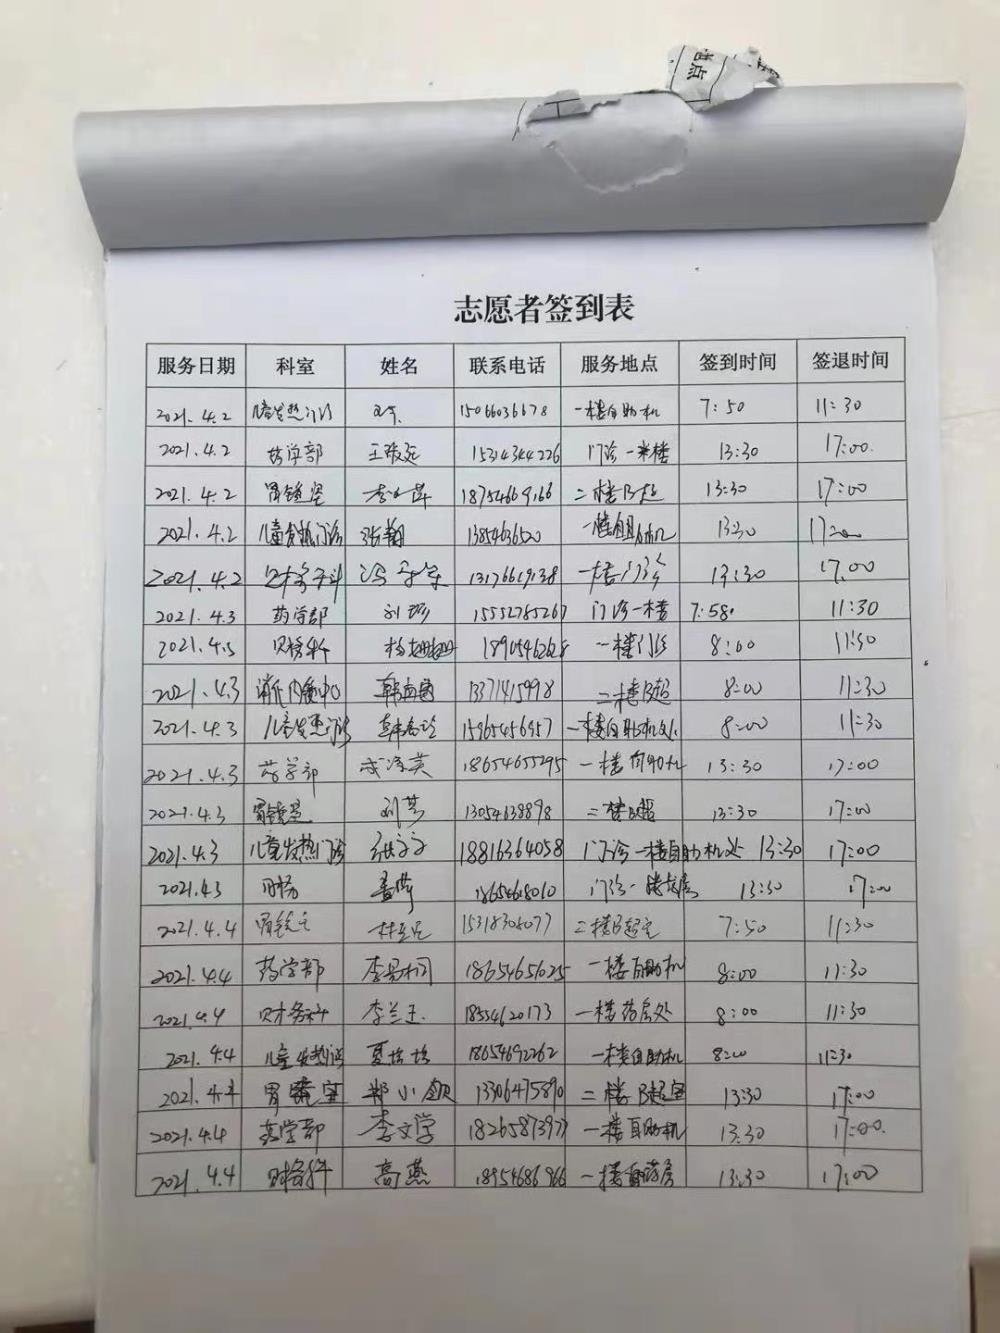 地点
志愿者签到表
服务日期 科室 姓名 联系电话 服务地点 签到时间 签退时间
2021.4.2 儿童发热门诊 15066036678 一楼自助机 7:50 11:30
2021.4.2 药学部 15314344226 门诊一楼 13:30 17:00.
2021.4.2 胃镜室 18754669166 二楼B超 13:30 17:00
2021.4.2 儿童发热门诊 张翔 13854636520 一楼自助机 13:30 17:00
2021.4.2 13176619138 一楼门诊 13:30 17.00
2021.4.3 药学部 15552785267 门诊一楼 7:58. 11:30
2021.4.3 财务科 杨姗姗 18905462628 一楼门诊 8:00 11:30
2021.4.3 消化内镜中心 13371415998 二楼B超 8:00 11:30
2021.4.3 儿童发热门诊 15965456957 一楼自助机处 8:00 11:30
2021.4.3 药学部 18654655295 一楼自助机 13:30 17:00
2021.4.3 胃镜室 13054638898 二楼B超 13:30 17:00
2021.4.3 儿童发热门诊 张文文 18816364058 门诊一楼自助机处 13:30 17:00
2021.4.3 财务 18654618010 门诊一楼药房 13:30 17:00
2021.4.4 胃镜室 15318308077 二楼B超室 7:50 11:30
2021.4.4 药学部 18654651025 一楼自助机 8:00 11:30
2021.4.4 财务科 李兰玉 18554620173 一楼药房处 8:00 11:30
2021.4.4 儿童发热门诊 夏培培 18654692262 一楼自助机 8:00 11:30
2021.4.4 胃镜室 郑小敏 13306475890 二楼B超室 13:30 17:00
2021.4.4 药学部 李文学 18265873977 一楼自助机 13:30 17:00.
2021.4.4 财务科 高燕 18954686966 一楼药房 13:30 17:00